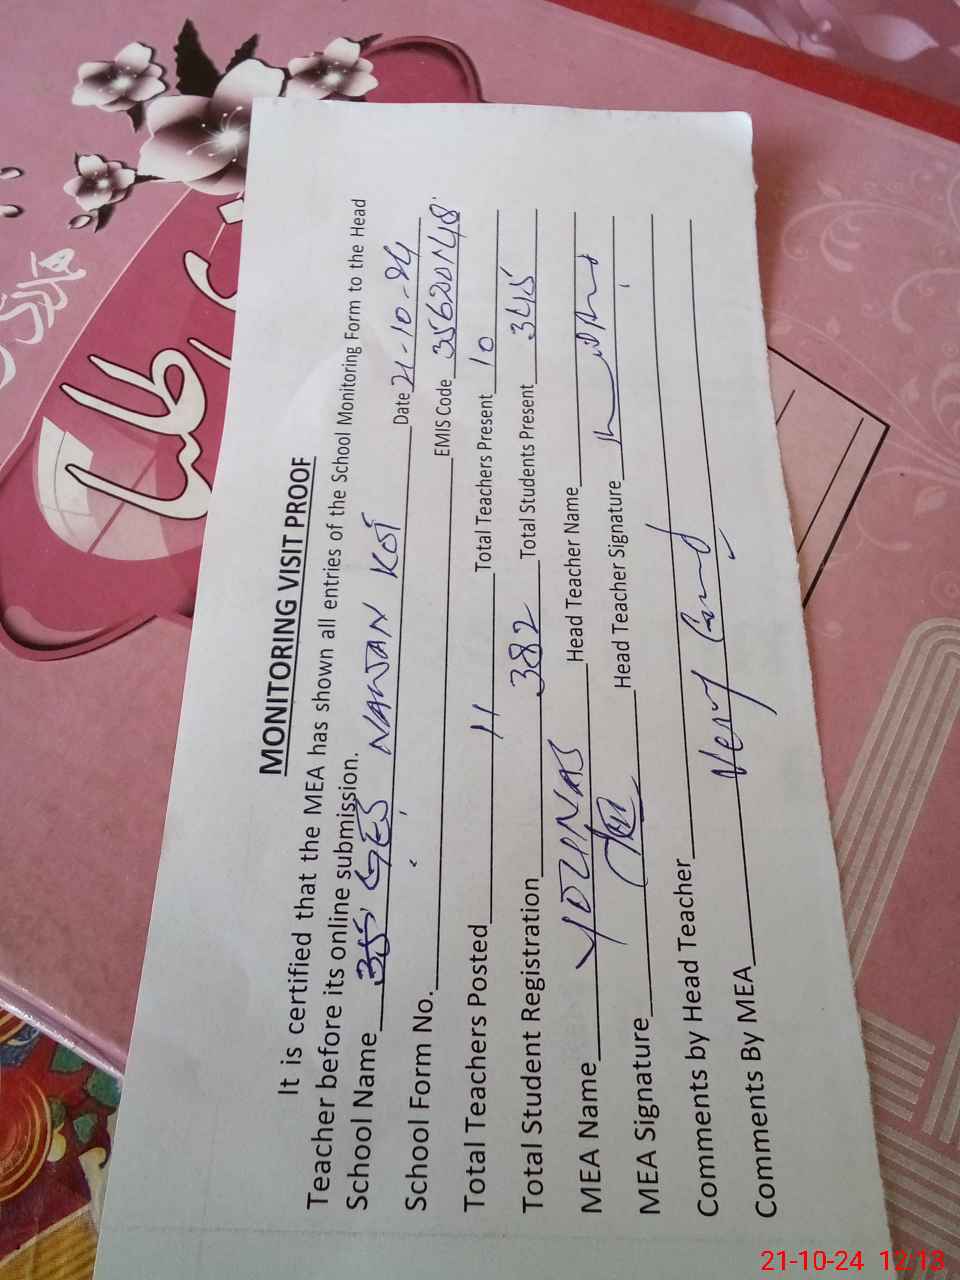 MONITORING VISIT PROOF
It is certified that the MEA has shown all entries of the School Monitoring Form to the Head
Teacher before its online submission.
School Name GES NAWAN KOT Date 21-10-24
School Form No. EMIS Code 35620148
Total Teachers Posted 11 Total Teachers Present 10
Total Student Registration 382 Total Students Present 345
MEA Name Head Teacher Name
MEA Signature Head Teacher Signature
Comments by Head Teacher
Comments By MEA Very Good
21-10-24 12:13